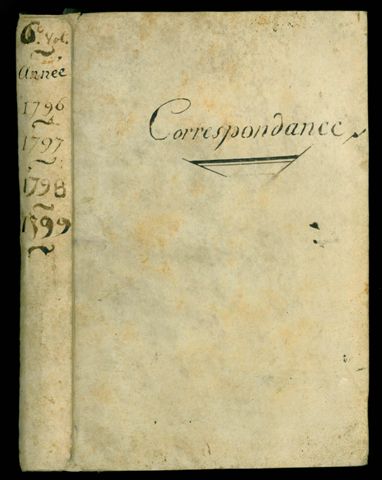 6e Vol.
Année
1796
1797
1798
1799
Correspondance